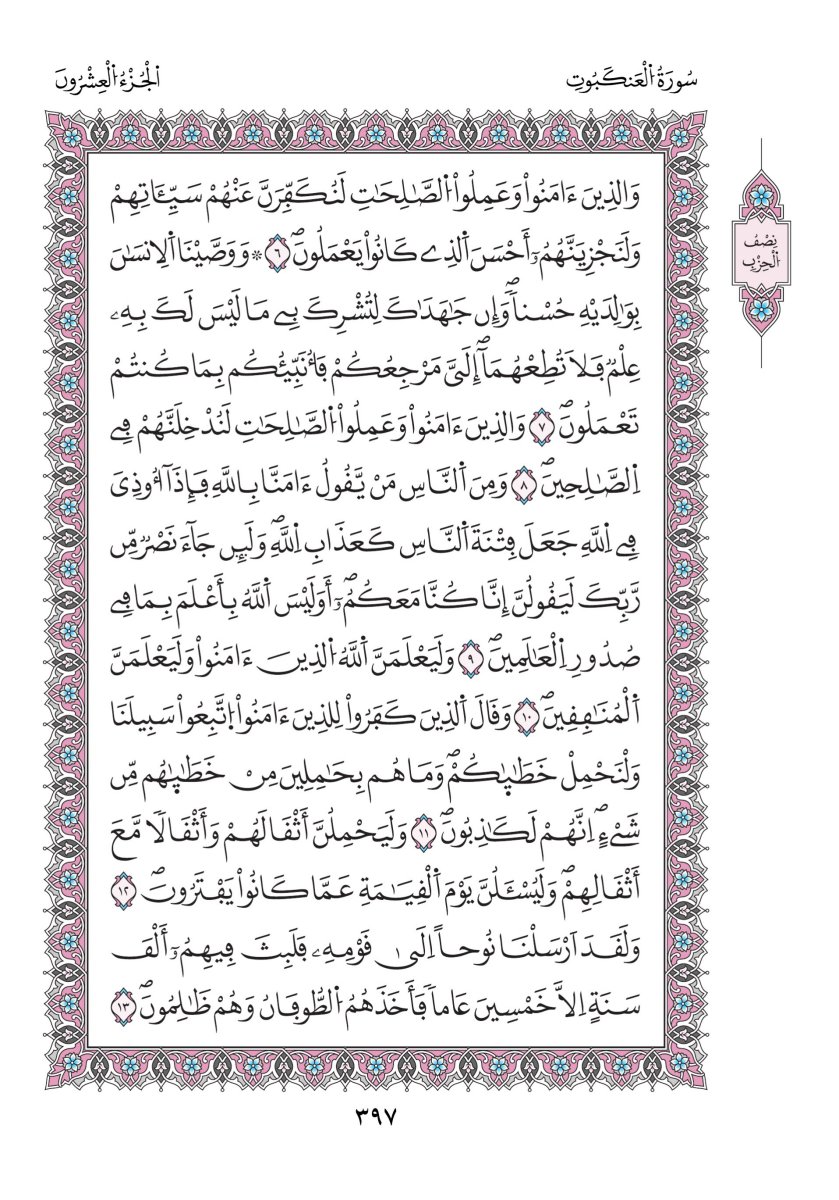 سُورَةُ اُ۬لْعَنكَبُوتِ
اَ۬لْجُزْءُ اُ۬لْعِشْرُونَ
نِصْفُ
اَ۬لْحِزْبِ
وَالذِينَ ءَامَنُواْ وَعَمِلُواْ اُ۬لصَّٰلِحَٰتِ لَنُكَفِّرَنَّ عَنْهُمْ سَيِّـَٔاتِهِمْ
وَلَنَجْزِيَنَّهُمُۥٓ أَحْسَنَ اَ۬لذِے كَانُواْ يَعْمَلُونَۖ ٦ ۞ وَوَصَّيْنَا اَ۬لِانسَٰنَ
بِوَٰلِدَيْهِ حُسْناٗۖ وَإِن جَٰهَدَاكَ لِتُشْرِكَ بِے مَا لَيْسَ لَكَ بِهِۦ
عِلْمٞ فَلَا تُطِعْهُمَآۖ إِلَيَّ مَرْجِعُكُمْ فَأُنَبِّئُكُم بِمَا كُنتُمْ
تَعْمَلُونَۖ ٧ وَالذِينَ ءَامَنُواْ وَعَمِلُواْ اُ۬لصَّٰلِحَٰتِ لَنُدْخِلَنَّهُمْ فِے
اِ۬لصَّٰلِحِينَۖ ٨ وَمِنَ اَ۬لنَّاسِ مَنْ يَّقُولُ ءَامَنَّا بِاللَّهِ فَإِذَآ أُوذِيَ
فِے اِ۬للَّهِ جَعَلَ فِتْنَةَ اَ۬لنَّاسِ كَعَذَابِ اِ۬للَّهِۖ وَلَئِن جَآءَ نَصْرٞ مِّن
رَّبِّكَ لَيَقُولُنَّ إِنَّا كُنَّا مَعَكُمُۥٓۖ أَوَلَيْسَ اَ۬للَّهُ بِأَعْلَمَ بِمَا فِے
صُدُورِ اِ۬لْعَٰلَمِينَۖ ٩ وَلَيَعْلَمَنَّ اَ۬للَّهُ اُ۬لذِينَ ءَامَنُواْ وَلَيَعْلَمَنَّ
اَ۬لْمُنَٰفِقِينَۖ ١٠ وَقَالَ اَ۬لذِينَ كَفَرُواْ لِلذِينَ ءَامَنُواْ اُ۪تَّبِعُواْ سَبِيلَنَا
وَلْنَحْمِلْ خَطَٰيَٰكُمْۖ وَمَا هُم بِحَٰمِلِينَ مِنْ خَطَٰيَٰهُم مِّن
شَےْءٍۖ اِنَّهُمْ لَكَٰذِبُونَۖ ١١ وَلَيَحْمِلُنَّ أَثْقَالَهُمْ وَأَثْقَالاٗ مَّعَ
أَثْقَالِهِمْۖ وَلَيُسْـَٔلُنَّ يَوْمَ اَ۬لْقِيَٰمَةِ عَمَّا كَانُواْ يَفْتَرُونَۖ ١٢
وَلَقَدَ اَرْسَلْنَا نُوحاً اِلَيٰ قَوْمِهِۦ فَلَبِثَ فِيهِمُۥٓ أَلْفَ
سَنَةٍ اِلَّا خَمْسِينَ عَاماٗ فَأَخَذَهُمُ اُ۬لطُّوفَانُ وَهُمْ ظَٰلِمُونَۖ ١٣
٣٩٧